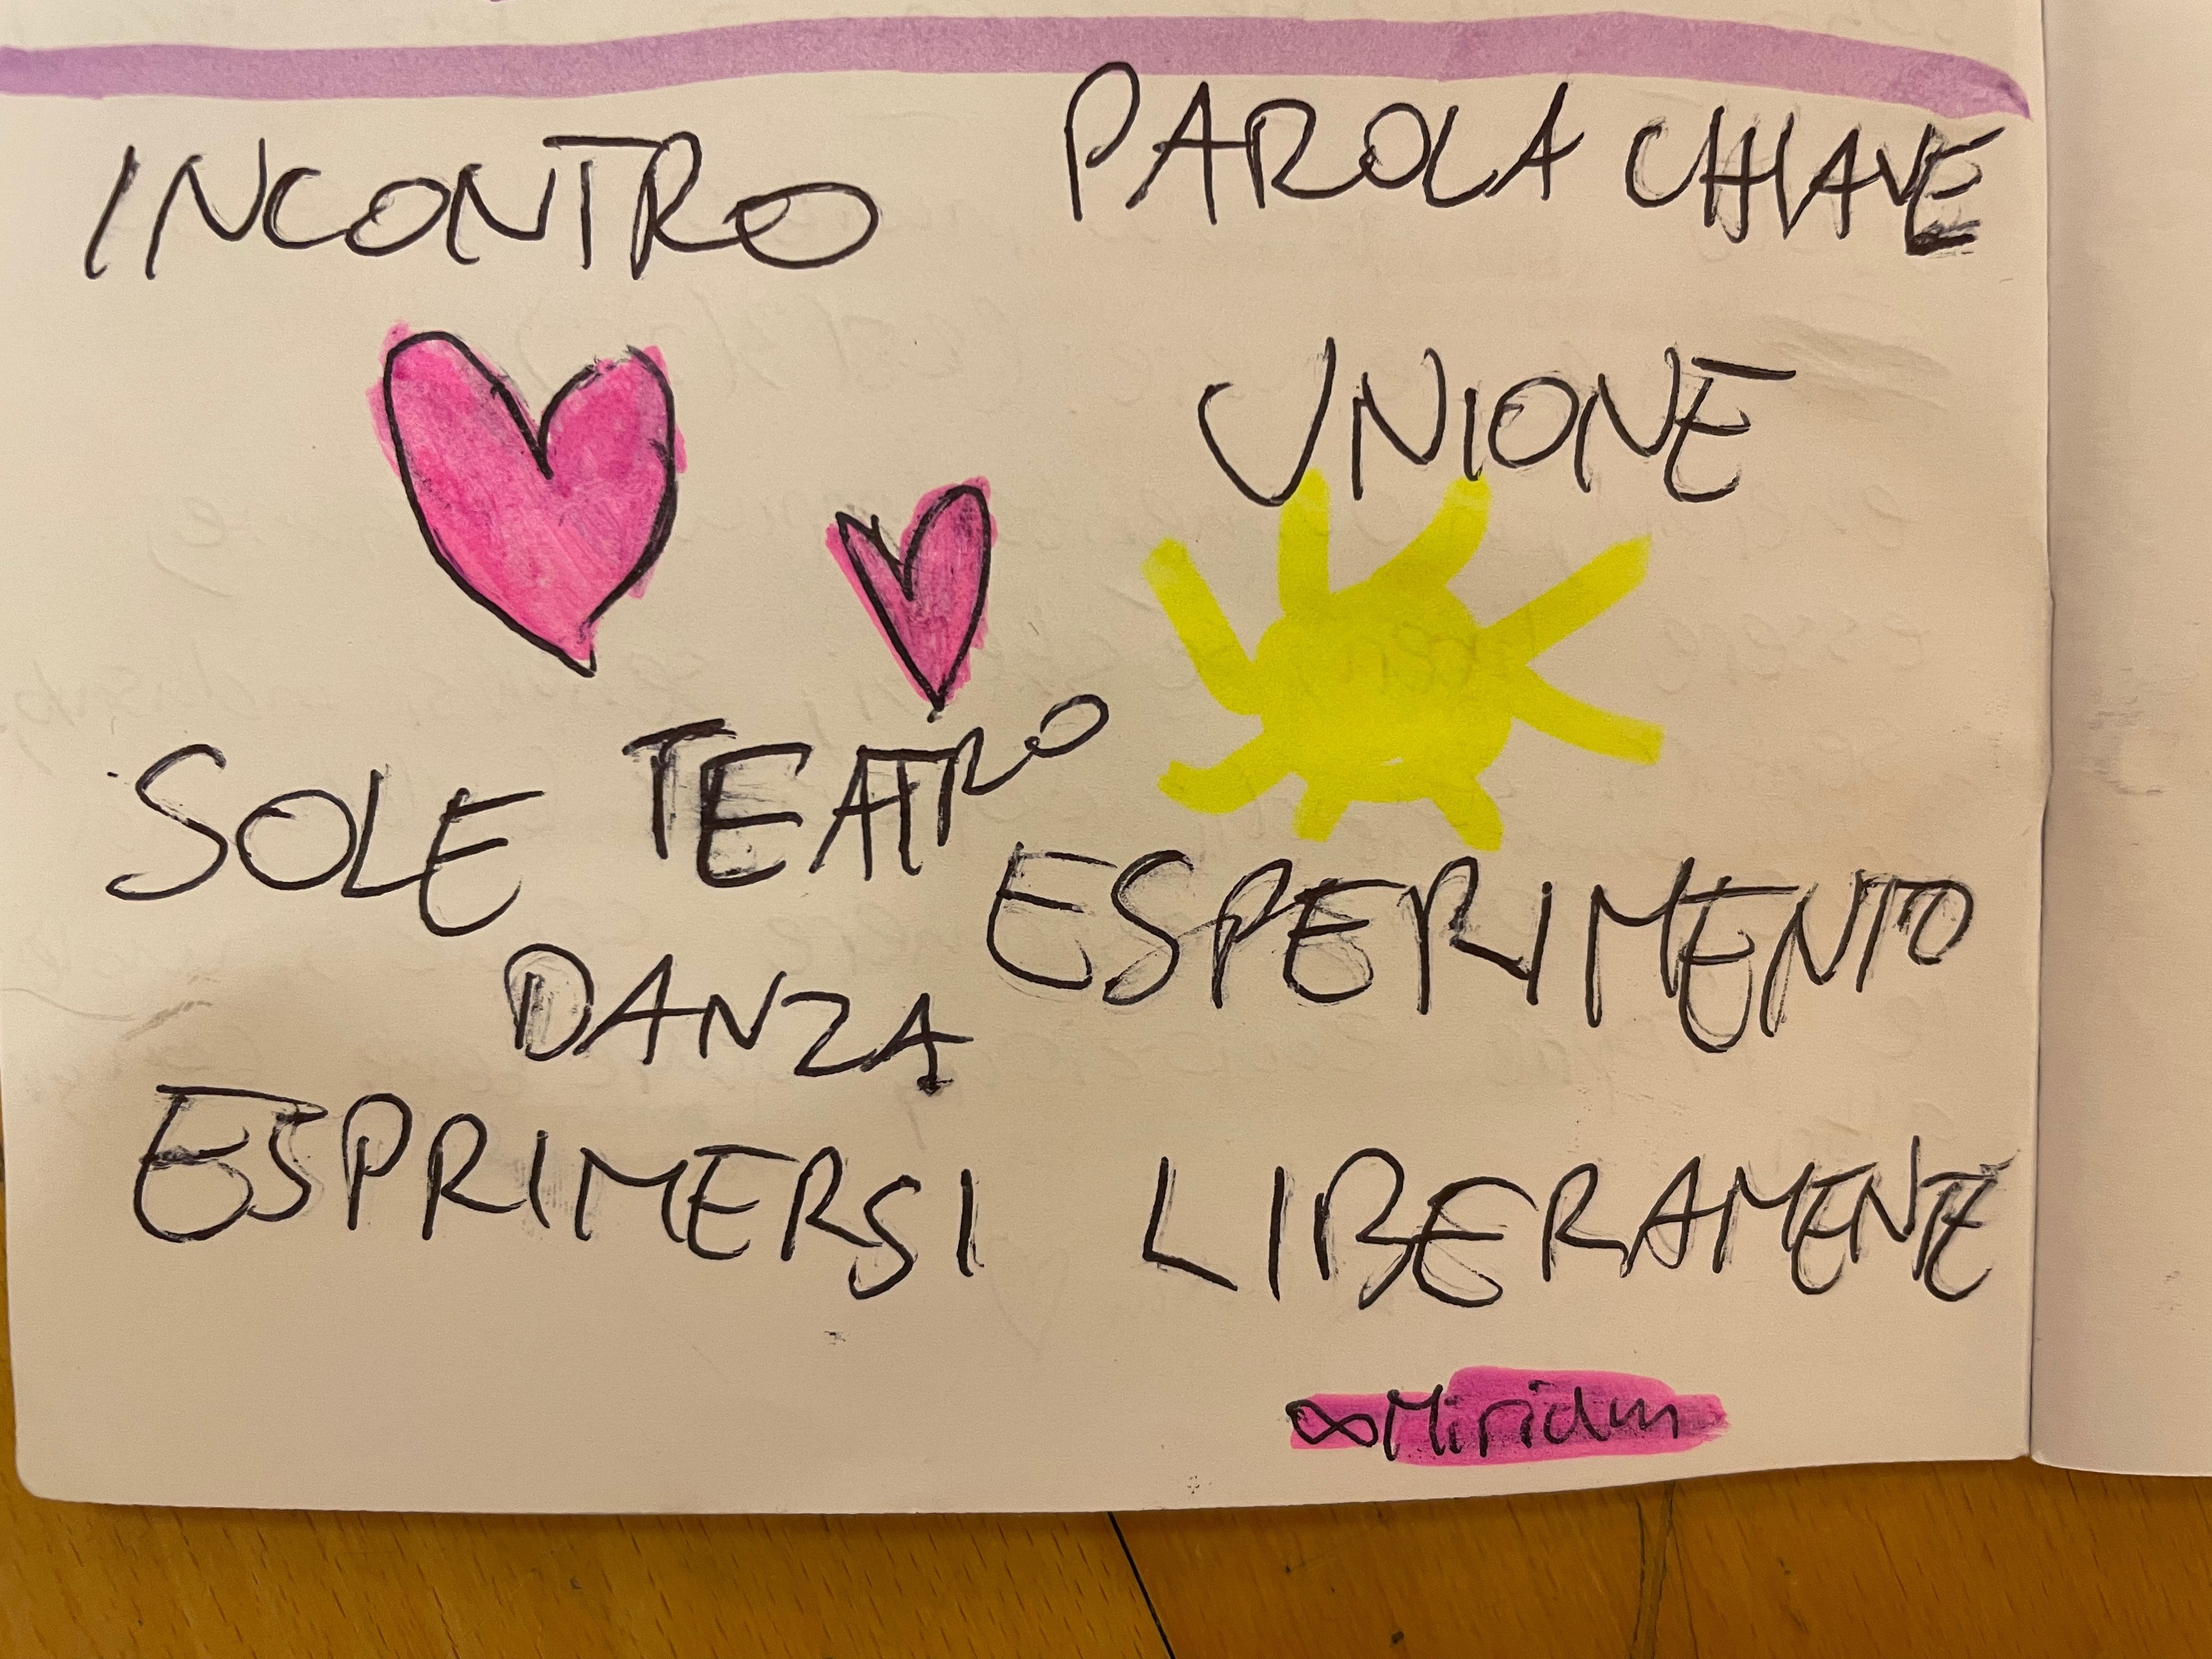 INCONTRO
PAROLA CHIAVE
UNIONE
SOLE TEATRO
ESPERIMENTO
DANZA
ESPRIMERSI LIBERAMENTE
∞Miriam